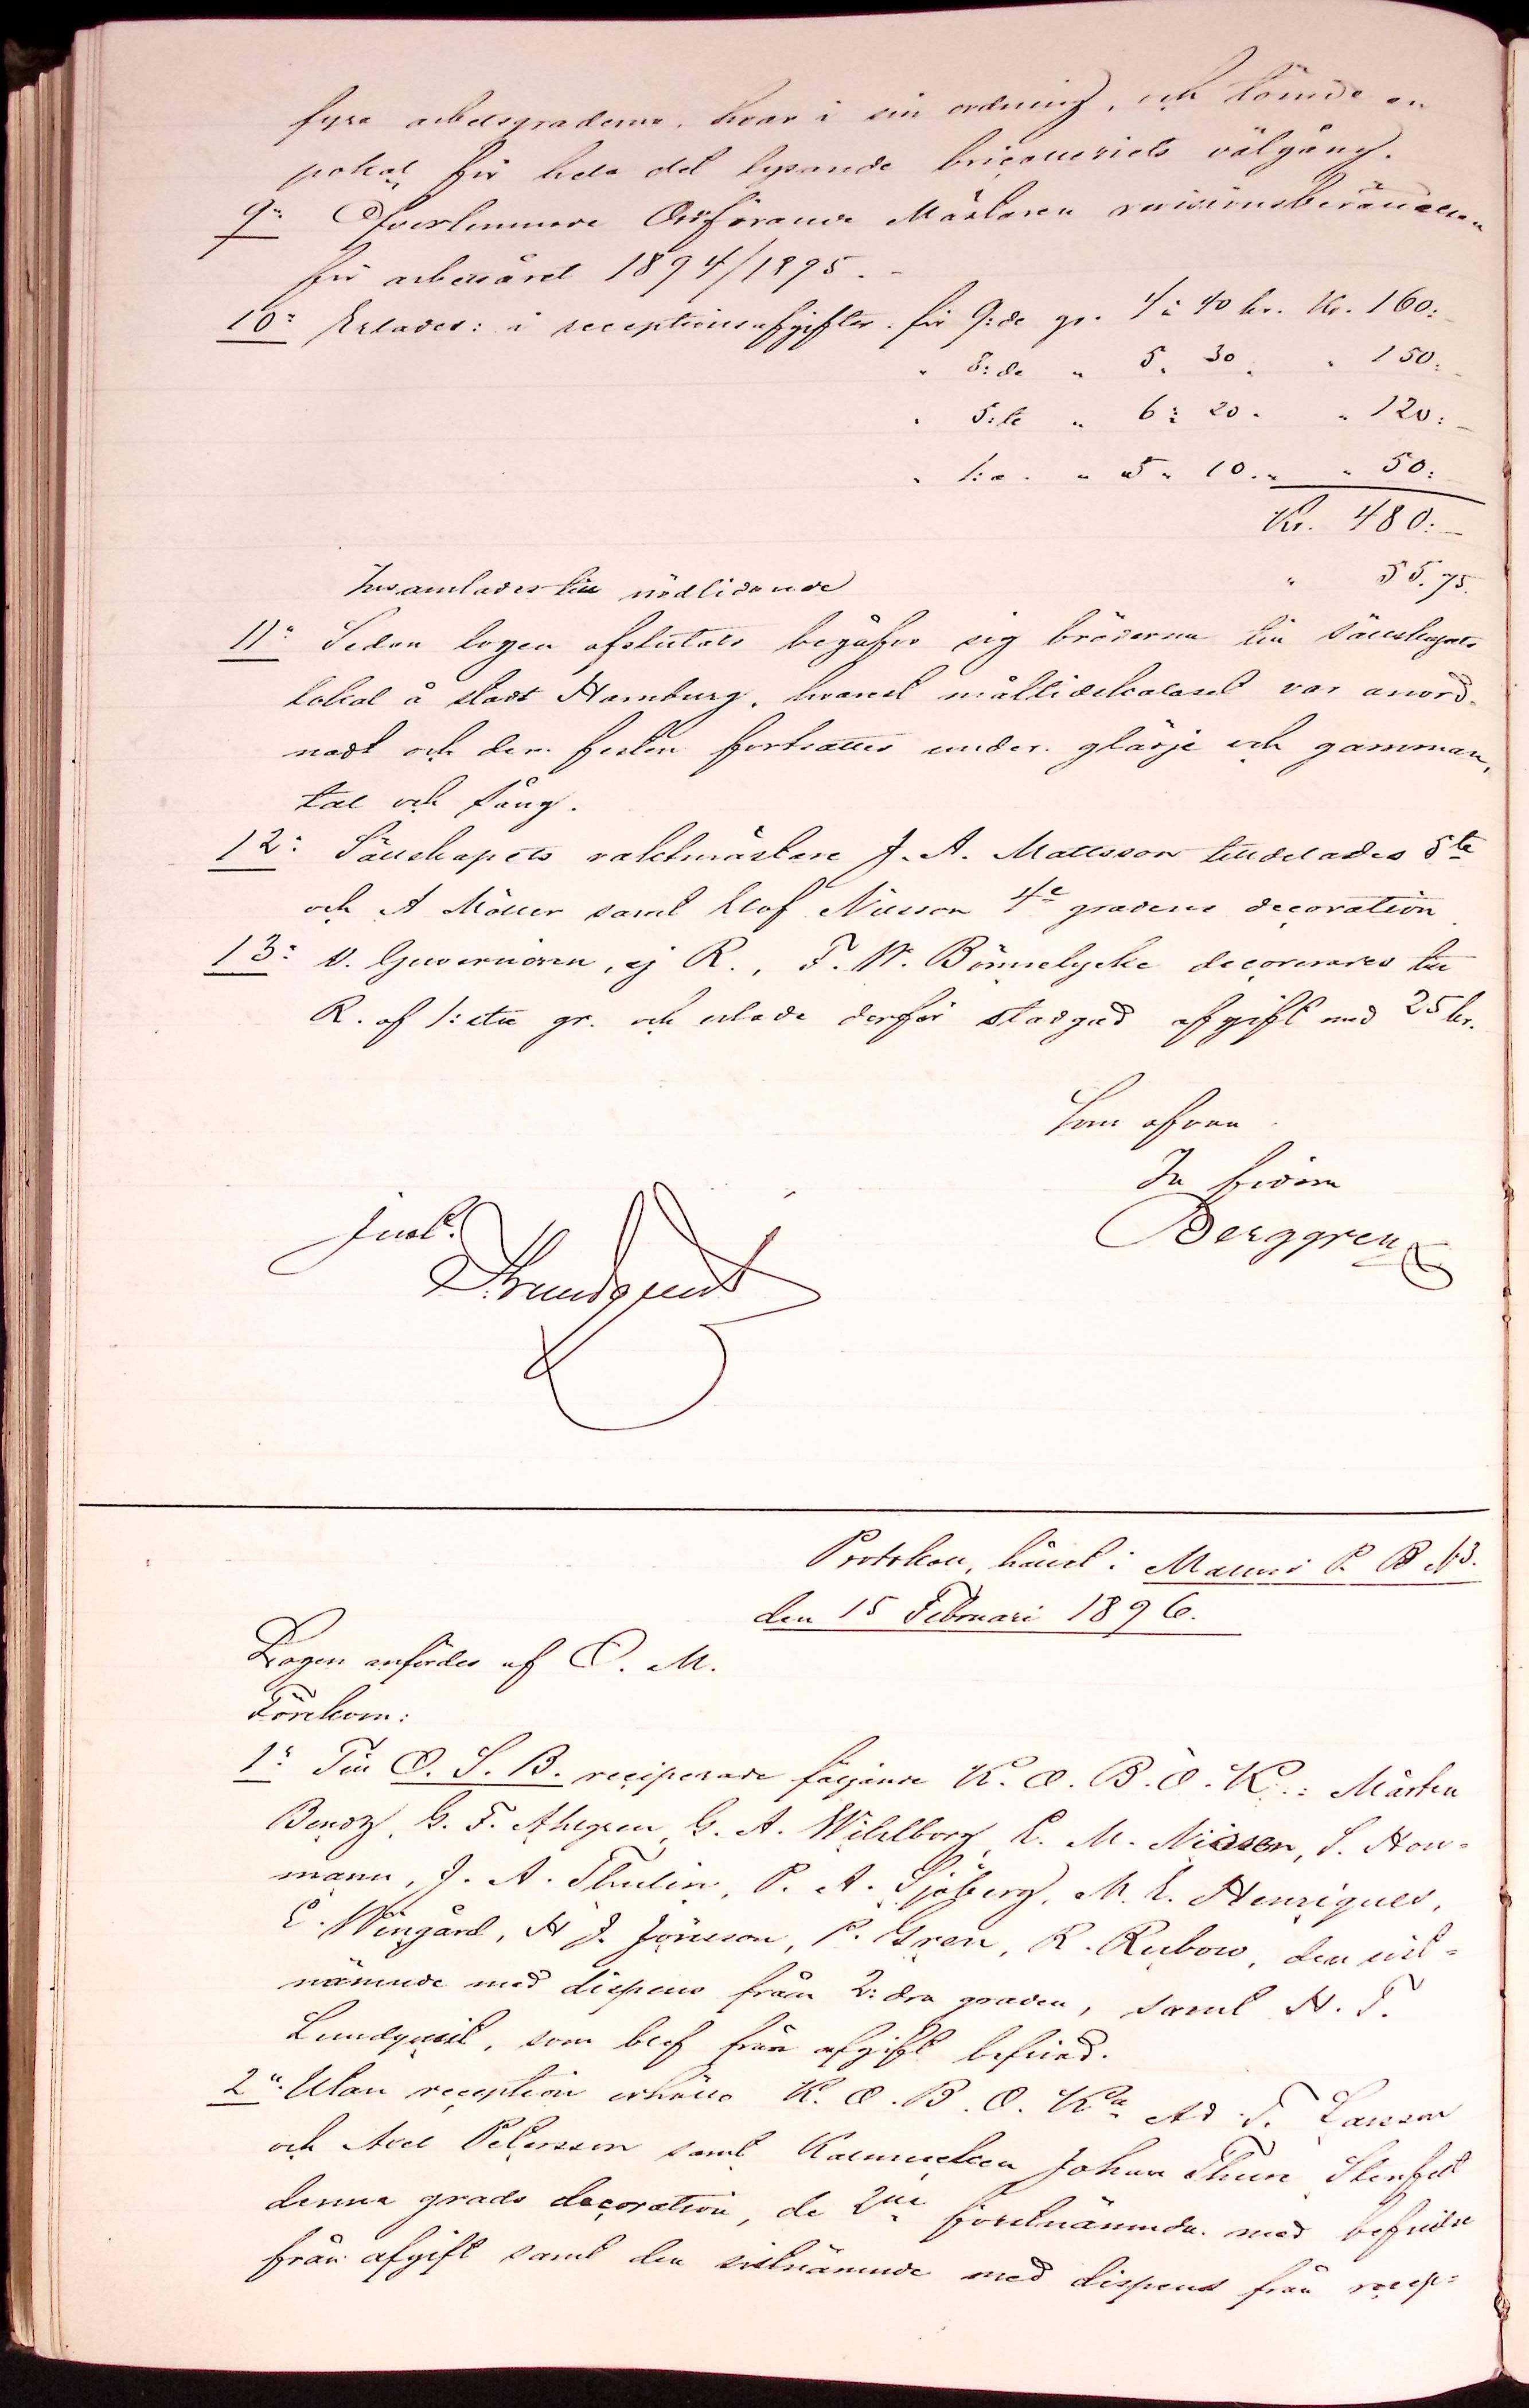 fyra arbetsgraderna, hvar i sin ordning, och tömde en
pokal för hela det lysande bricqueriets välgång.
9:o Öfverlemnade Ordförande Mästaren revisionsberättelsen
för arbetsåret 1894/1895. -
10:o Erlades: i receptionsafgifter. för 9:de gr. 4 à 40 kr. Kr. 160: -
" 8:de " 5 " 30 " " 150: -
" 5:te " 6 " 20 " " 120: -
" 1:a " 5 " 10 " " 50:
Kr. 480: -
Insamlades till nödlidande " 55.75.
11:o Sedan logen afslutats begåfvo sig bröderna till Sällskapets
lokal å stadt Hamburg, hvarest måltidskalaset var anord-
nadt och der festen fortsattes under glädje och gamman,
tal och sång.
12:o Sällskapets vaktmästare J. A. Mattsson tilldelades 5te
och A Möller samt Olof Nilsson 4e gradens decoration.
13:o v. Guvernören, ej R., F. W. Bönnelycke decorerades till
R. af 1:sta gr. och erlade derför stadgad afgift med 25 kr.
Som ofvan
In fidem
Berggren
Just.
Strundquist
Protokoll, hållet i Malmö P. B No 3.
den 15 Februari 1896.
Logen anfördes af O. M.
Förekom:
1:o Till O. S. B. reciperade följande K. O. B. O. K.: Mårten
Bendz, G. F. Ahlgren, G. A. Wihlborg, E. M. Nilsson, S. How-
mann, J. A. Thulin, P. A. Sjöberg, M. E. Henriques,
E. Wingård, H J. Jönsson, P. Gren, R. Rubow, den sist-
nämnde med dispens från 2:dra graden, samt H. T.
Lundquist, som blef från afgift befriad.
2:o Utan reception erhöllo K. O. B. O. K:a Ad. F. Larsson
och Axel Petersson samt Kalmarebon Johan Thure Stenfelt
denna grads decoration, de 2ne förstnämnda med befrielse
från afgift samt den sistnämnde med dispens från recep-